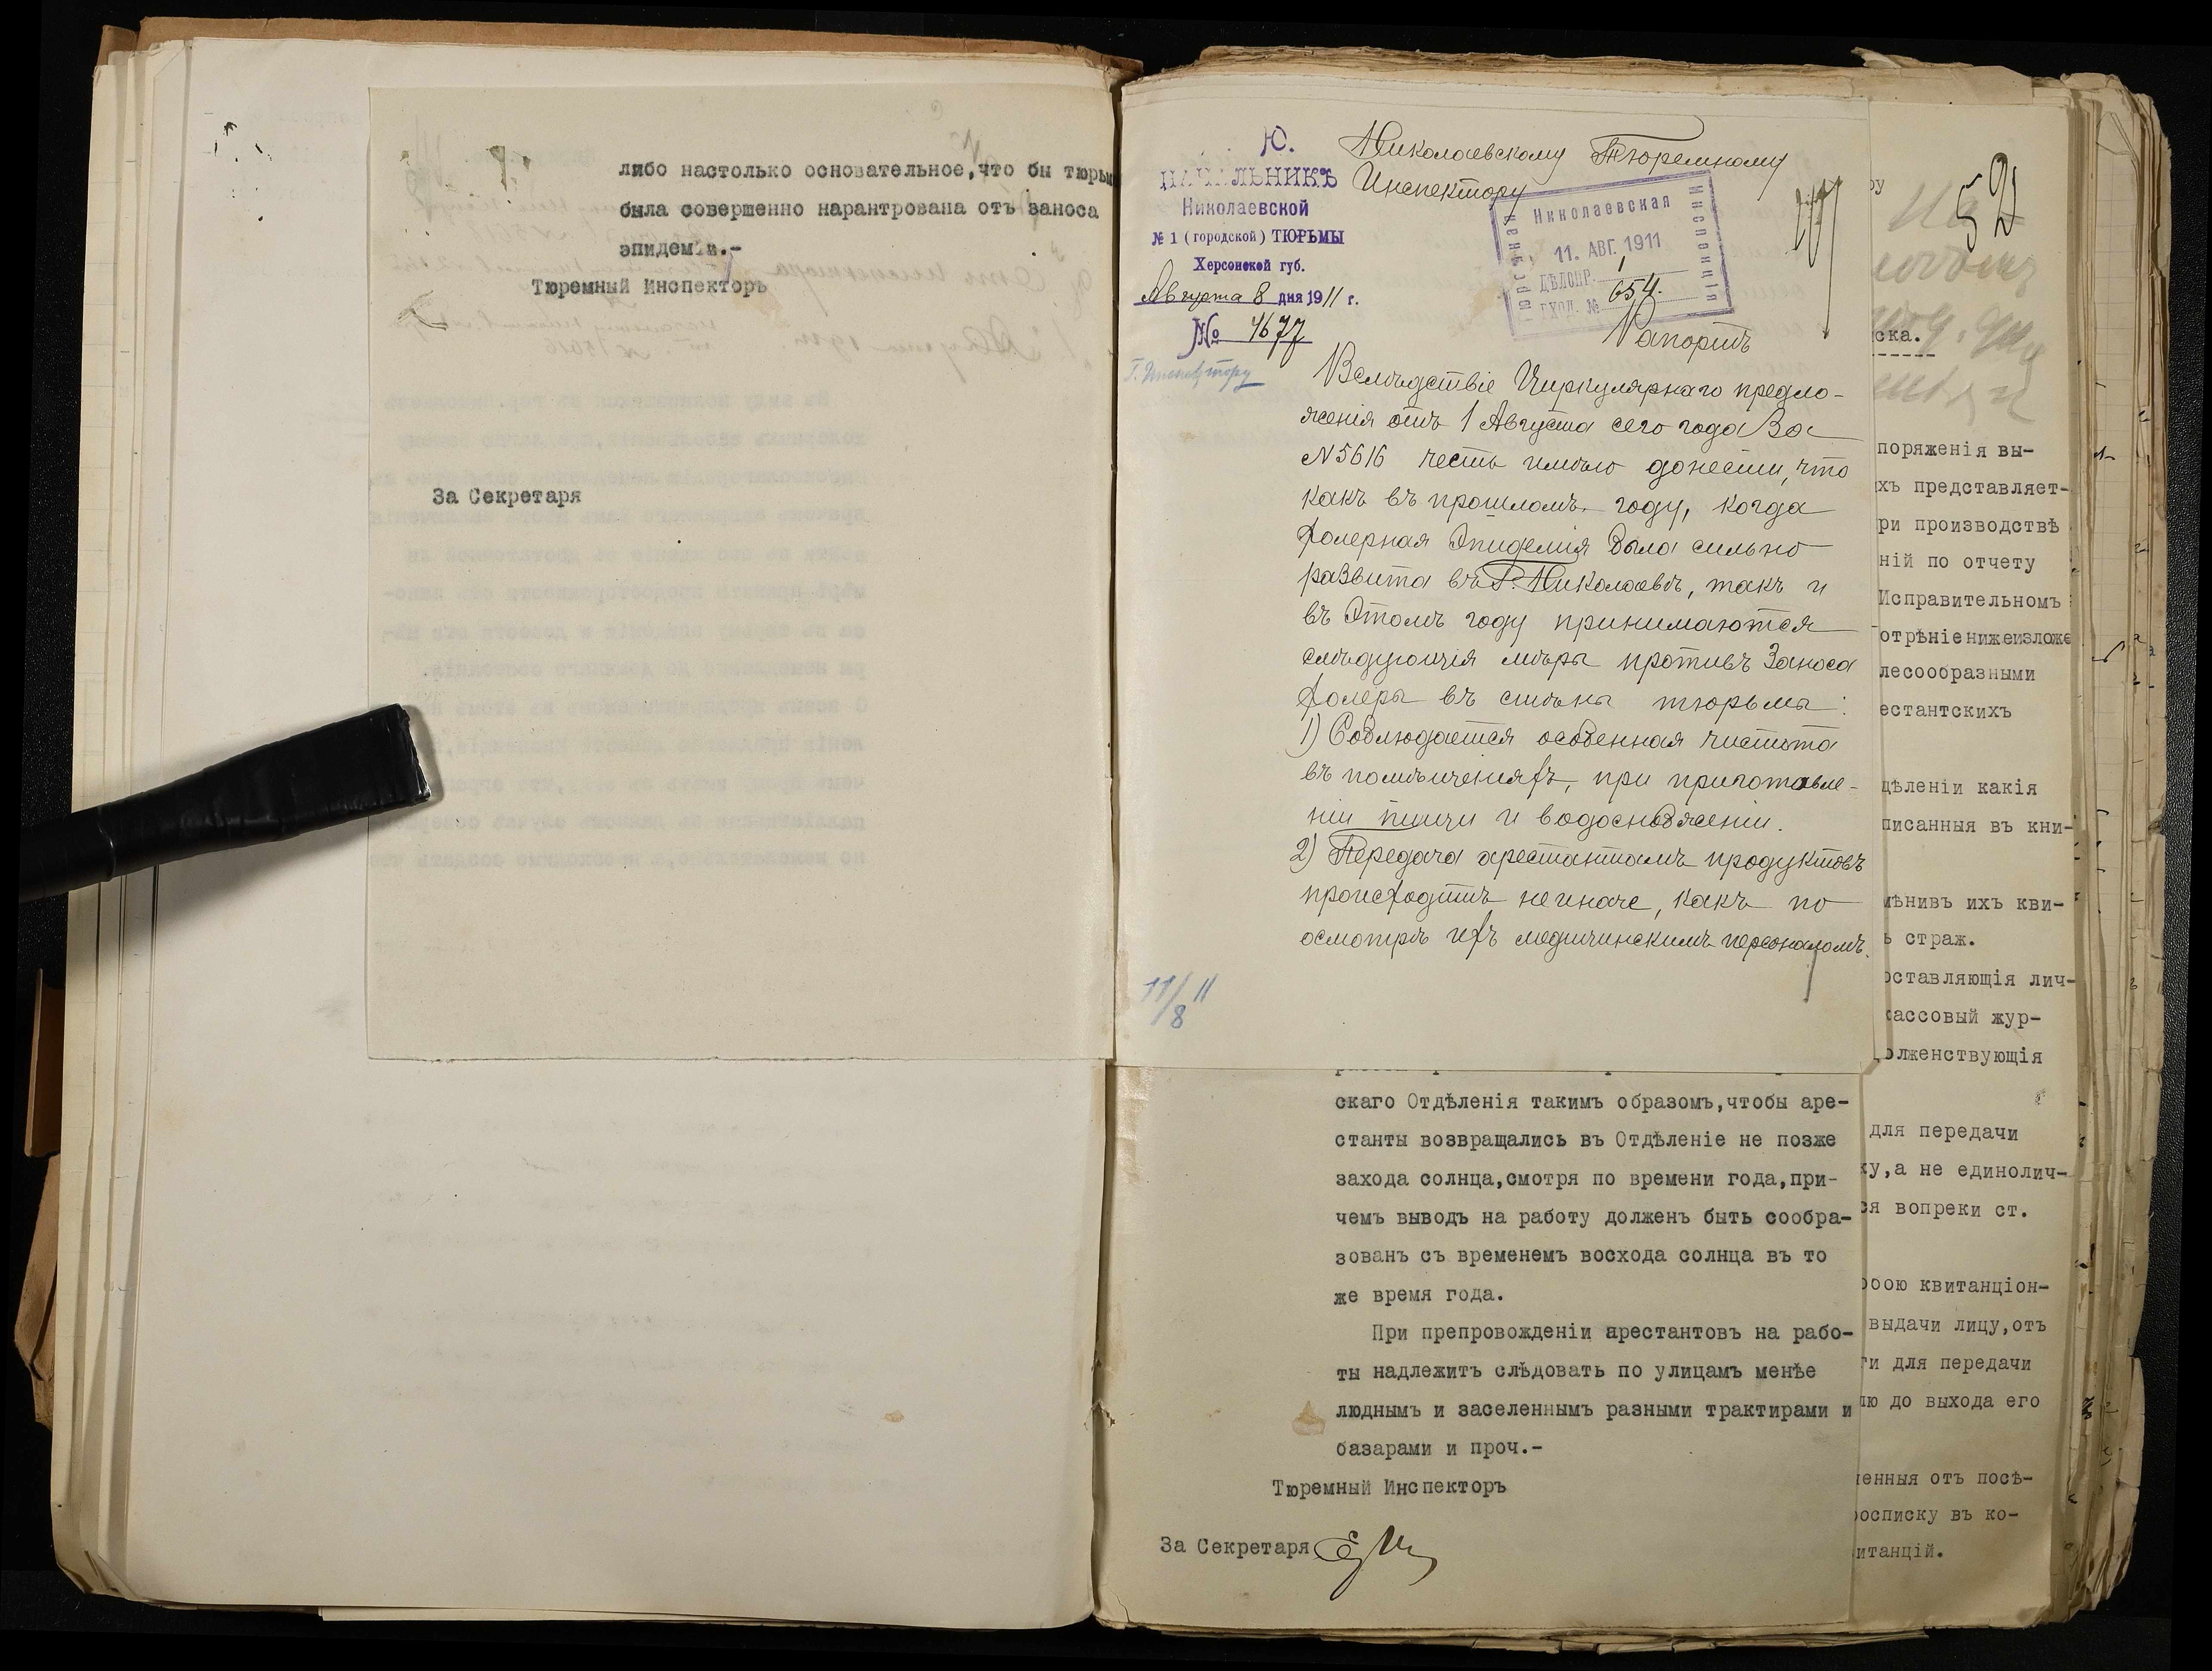 либо настолько основательное,что бы тюрьм
была совершенно нарантрована отъ заноса
эпидемiи.-
Тюремный Инспекторъ
За Секретаря
Ю.
НАЧАЛЬНИКЪ
Николаевской
№ 1 (городской) ТЮРЬМЫ
Херсонской губ.
Августа 8 дня 1911 г.
№ 4677
Г. Инспектору
Николаевскому Тюремному
Инспектору
Николаевская
Инспекцiя
11. АВГ. 1911
ДѢЛОПР. 1
ВХОД. № 654.
Рапортъ
Вслѣдствiе Циркулярнаго предло-
женiя отъ 1 Августа сего года За
N 5616 честь имѣю донести, что
какъ въ прошломъ году, когда
холерная Эпидемiя была сильно
развита въ Г. Николаевѣ, такъ и
въ Этомъ году принимаются
слѣдующiя мѣры противъ Заноса
холеры въ стѣны тюрьмы:
1) Соблюдается особенная чистота
въ помѣщенiяхъ, при приготовле-
нiи пищи и водоснабженiи.
2) Передача арестантамъ продуктовъ
происходитъ не иначе, какъ по
осмотрѣ ихъ медицинскимъ персоналомъ.
11/8 11
скаго Отдѣленiя такимъ образомъ,чтобы аре-
станты возвращались въ Отдѣленiе не позже
захода солнца,смотря по времени года,при-
чемъ выводъ на работу долженъ быть сообра-
зованъ съ временемъ восхода солнца въ то
же время года.
При препровожденiи арестантовъ на рабо-
ты надлежитъ слѣдовать по улицамъ менѣе
люднымъ и заселеннымъ разными трактирами и
базарами и проч.-
Тюремный Инспекторъ
За Секретаря
52
ру
ска.
поряженiя вы-
хъ представляет-
ри производствѣ
нiй по отчету
Исправительномъ
отрѣнiе нижеизложе
лесообразными
естантскихъ
дѣленiи какiя
писанныя въ кни-
мѣнивъ ихъ кви-
ъ страж.
оставляющiя лич-
кассовый жур-
долженствующiя
для передачи
ку,а не единолич-
ся вопреки ст.
рою квитанцiон-
выдачи лицу,отъ
ги для передачи
лю до выхода его
ленныя отъ посѣ-
росписку въ ко-
итанцiй.